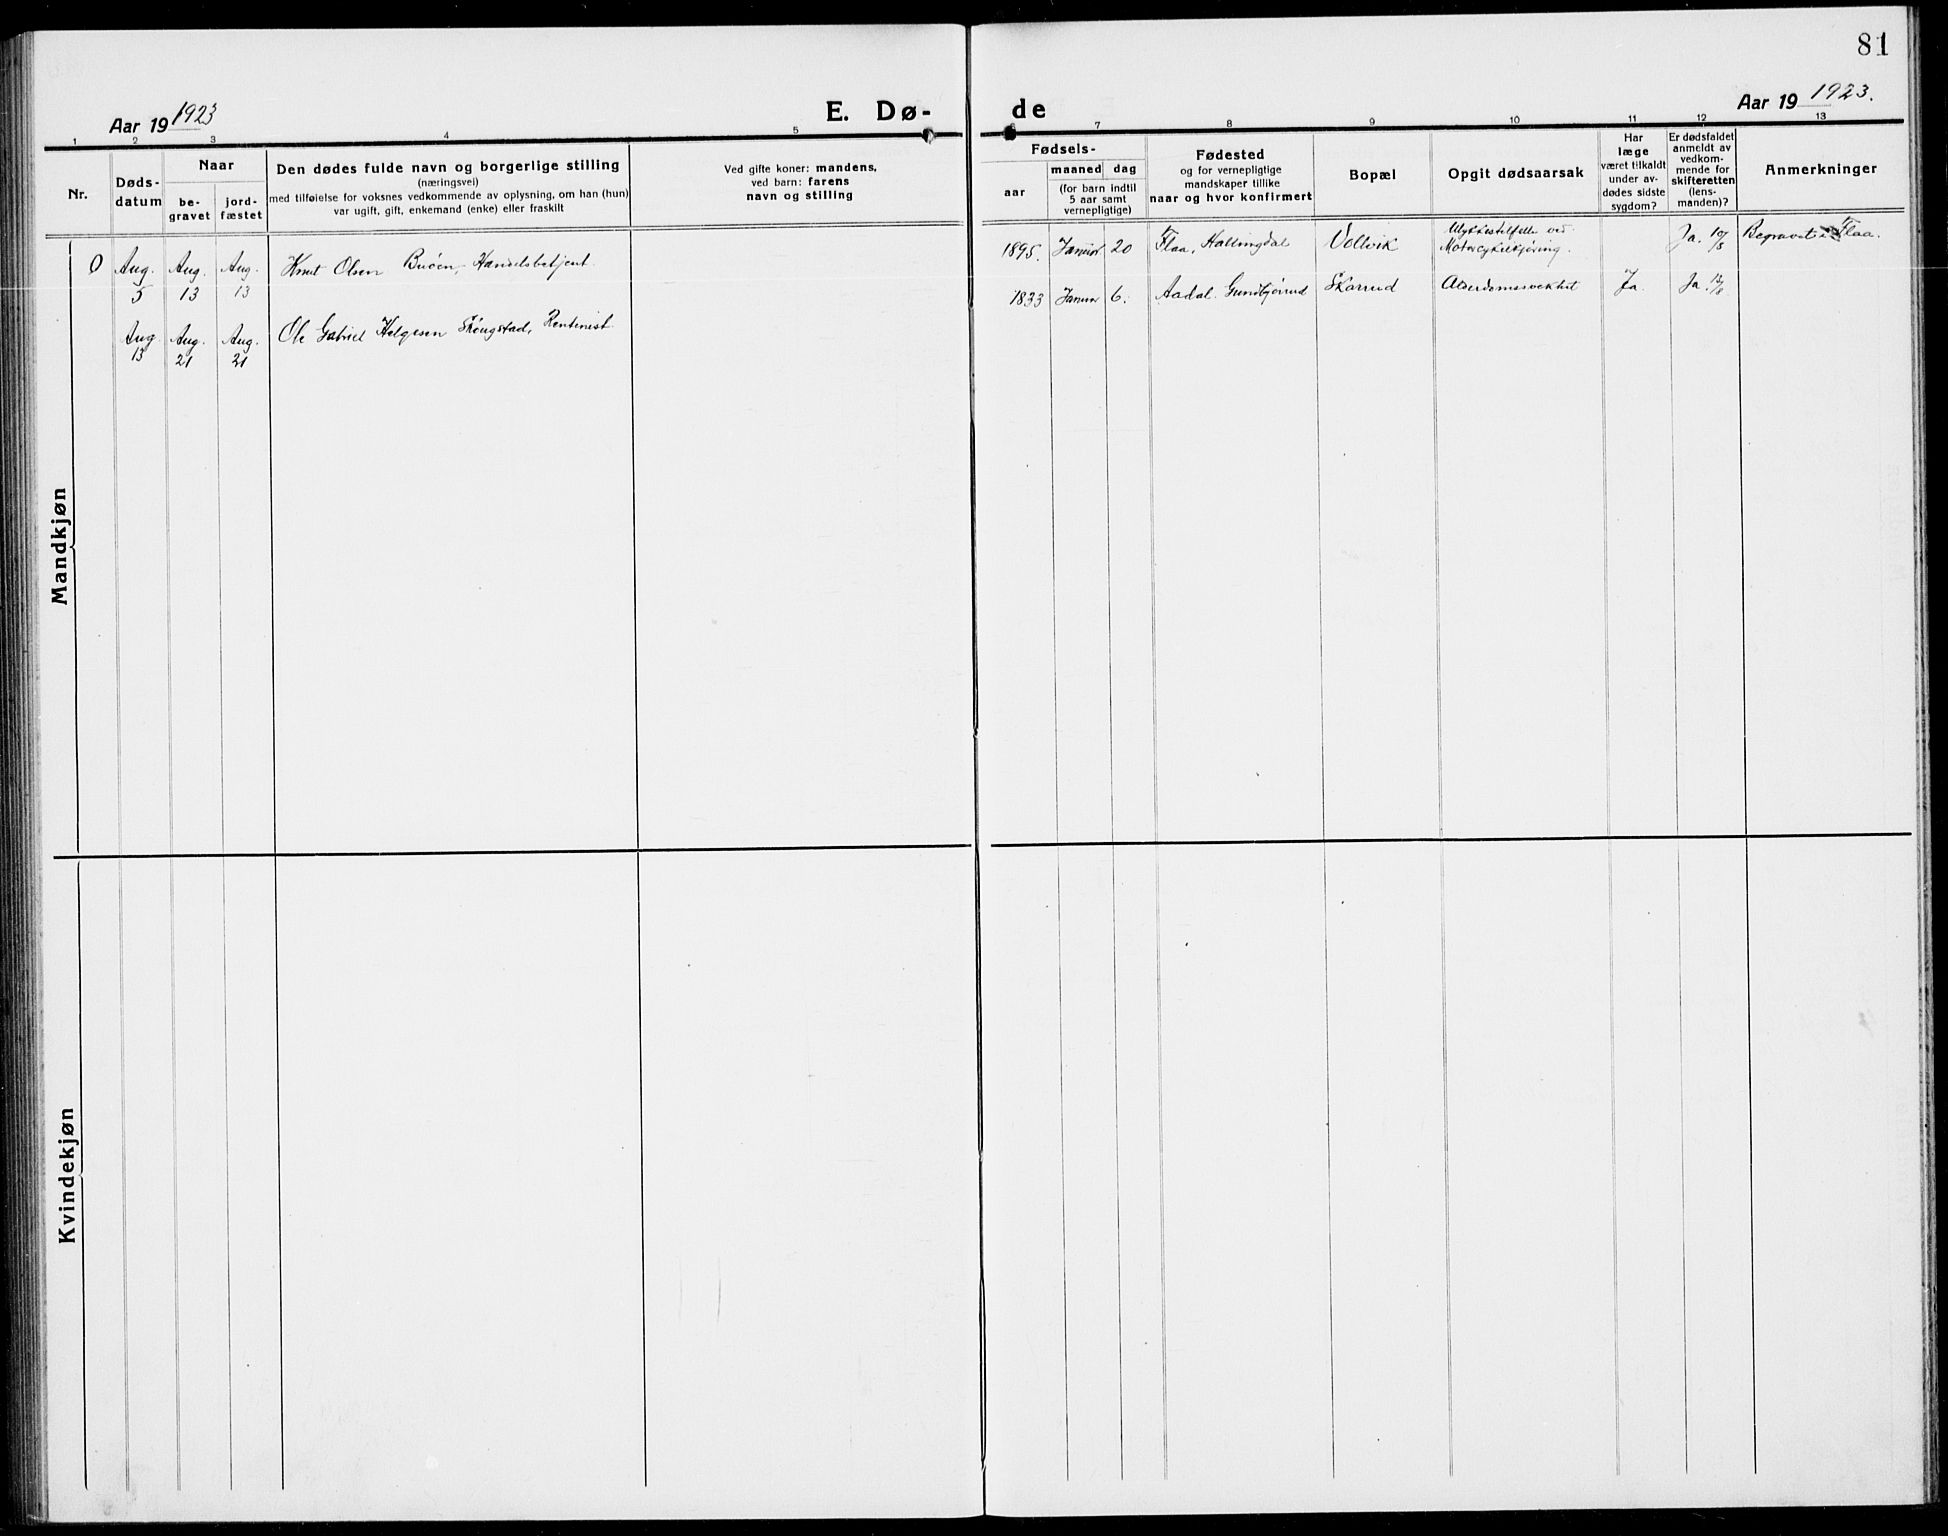 81
Aar 19 1923
E. Dø-
de
Aar 19 1923.
1 2 3 4 5 6 7 8 9 10 11 12 13
Nr.
Døds-
datum
Naar
be-
gravet
jord-
fæstet
Den dødes fulde navn og borgerlige stilling
(næringsvei)
med tilføielse for voksnes vedkommende av oplysning, om han (hun)
var ugift, gift, enkemand (enke) eller fraskilt
Ved gifte koner: mandens,
ved barn: farens
navn og stilling
Fødsels-
aar
maaned dag
(for barn indtil
5 aar samt
vernepligtige)
Fødested
og for vernepligtige
mandskaper tillike
naar og hvor konfirmert
Bopæl
Opgit dødsaarsak
Har
læge
været tilkaldt
under av-
dødes sidste
sygdom?
Er dødsfaldet
anmeldt av
vedkom-
mende for
skifteretten
(lens-
manden)?
Anmerkninger
Mandkjøn
0 Aug. 5 Aug. 13 Aug. 13 Knut Olsen Buøen, Handelsbetjent. 1895. Januar 20 Flaa, Hallingdal Vollvik Ulykkestilfelle ved
Motorcykelkjøring. Ja. 10/8 Begravet i Flaa.
Aug. 13 Aug. 21 Aug. 21 Ole Gabriel Helgesen Skougstad, Rentenist. 1833 Januar 6. Aadal. Gundbjørrud Skarrud Alderdomssvekket Ja. Ja.
Kvindekjøn